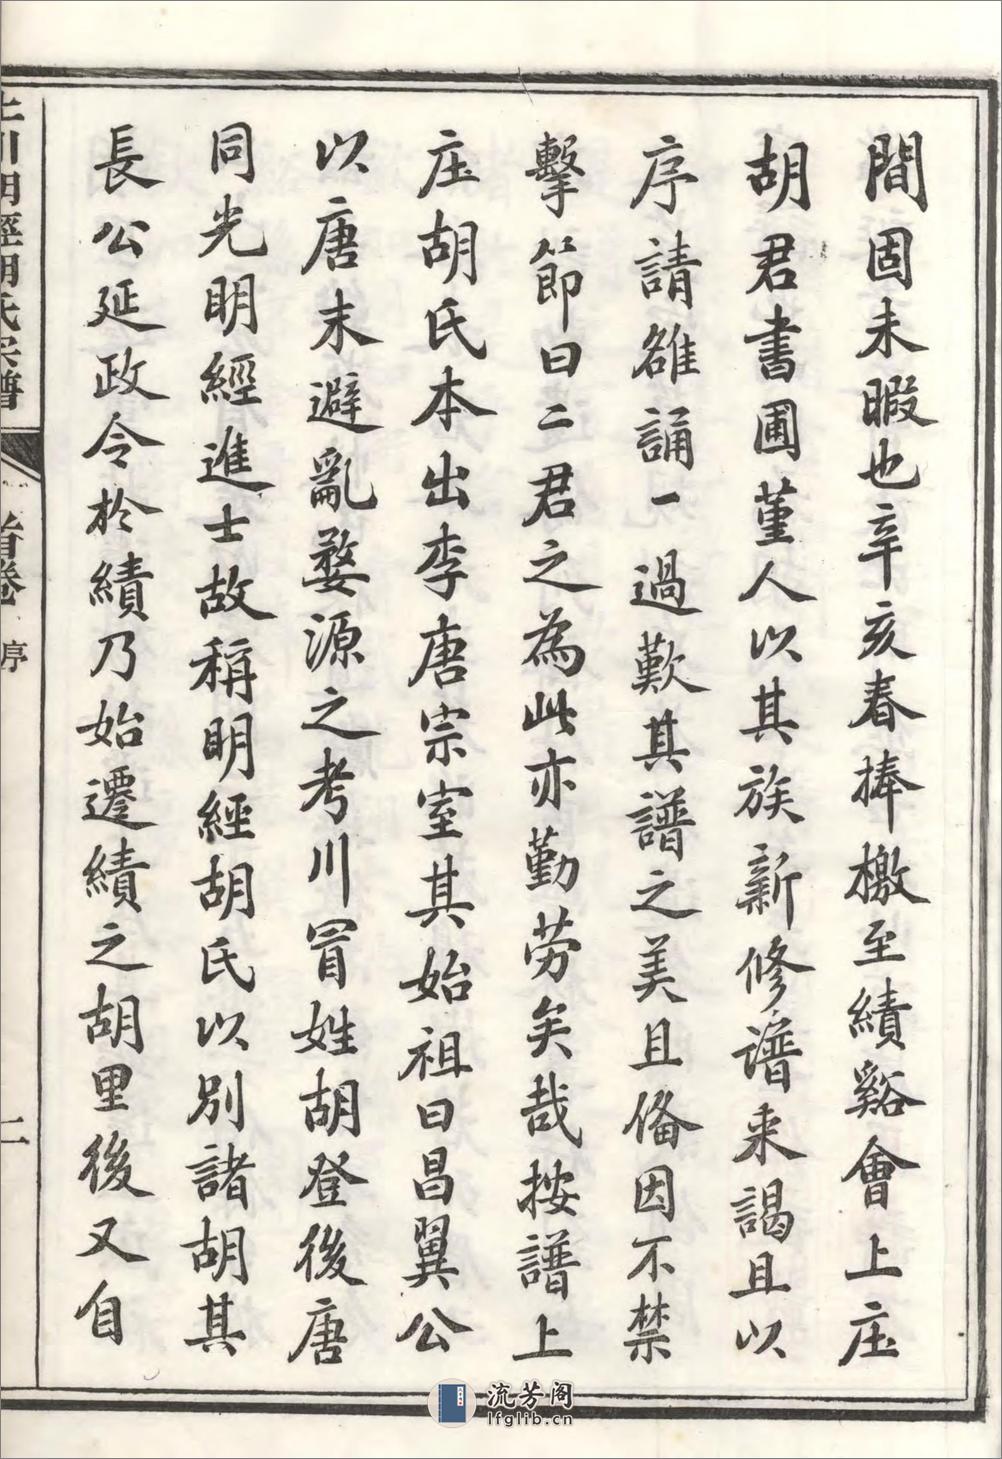 間固未暇也辛亥春捧檄至績谿會上庄
胡君書圃堇人以其族新修譜来謁且以
序請雒誦一過歎其譜之美且俻因不禁
擊節曰二君之為此亦勤劳矣哉按譜上
庄胡氏本出李唐宗室其始祖曰昌翼公
以唐末避亂婺源之考川冒姓胡登後唐
同光明經進士故稱明經胡氏以別諸胡其
長公延政令於績乃始遷績之胡里後又自
上川明經胡氏宗譜
首卷
序
二
流芳阁
lfglib.cn